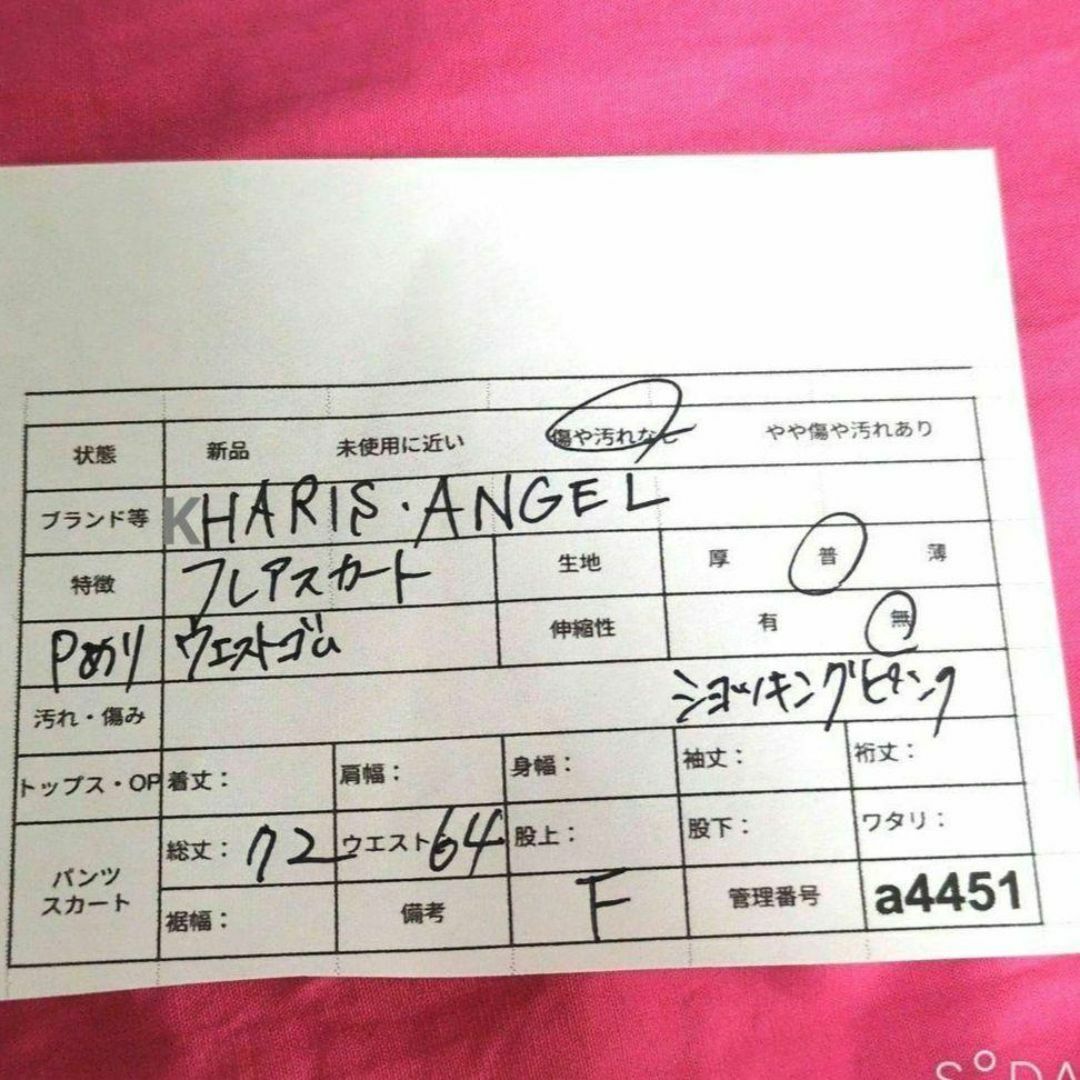 状態 新品 未使用に近い 傷や汚れなし やや傷や汚れあり
ブランド等 KHARIS・ANGEL
特徴 フレアスカート 生地 厚 普 薄
Pあり ウエストゴム 伸縮性 有 無
汚れ・傷み ショッキングピンク
トップス・OP 着丈: 肩幅: 身幅: 袖丈: 裄丈:
パンツ スカート 総丈: 72 ウエスト 64 股上: 股下: ワタリ:
裾幅: 備考 F 管理番号 a4451